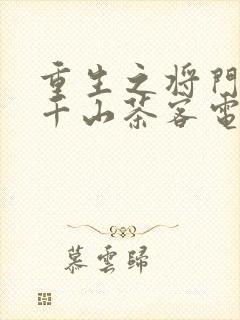 重生之将門
千山茶客電
慕雲歸